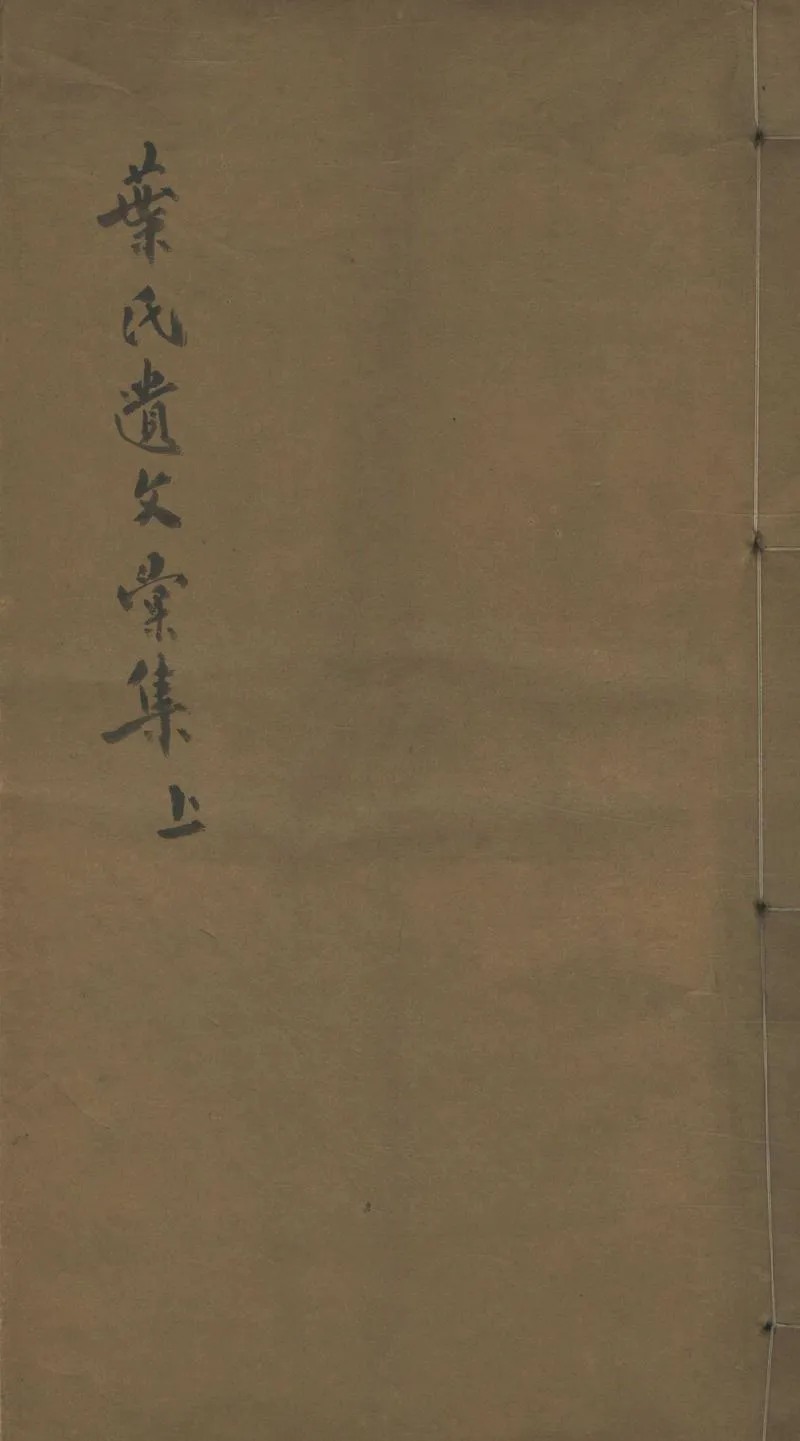 葉氏遺文彙集上